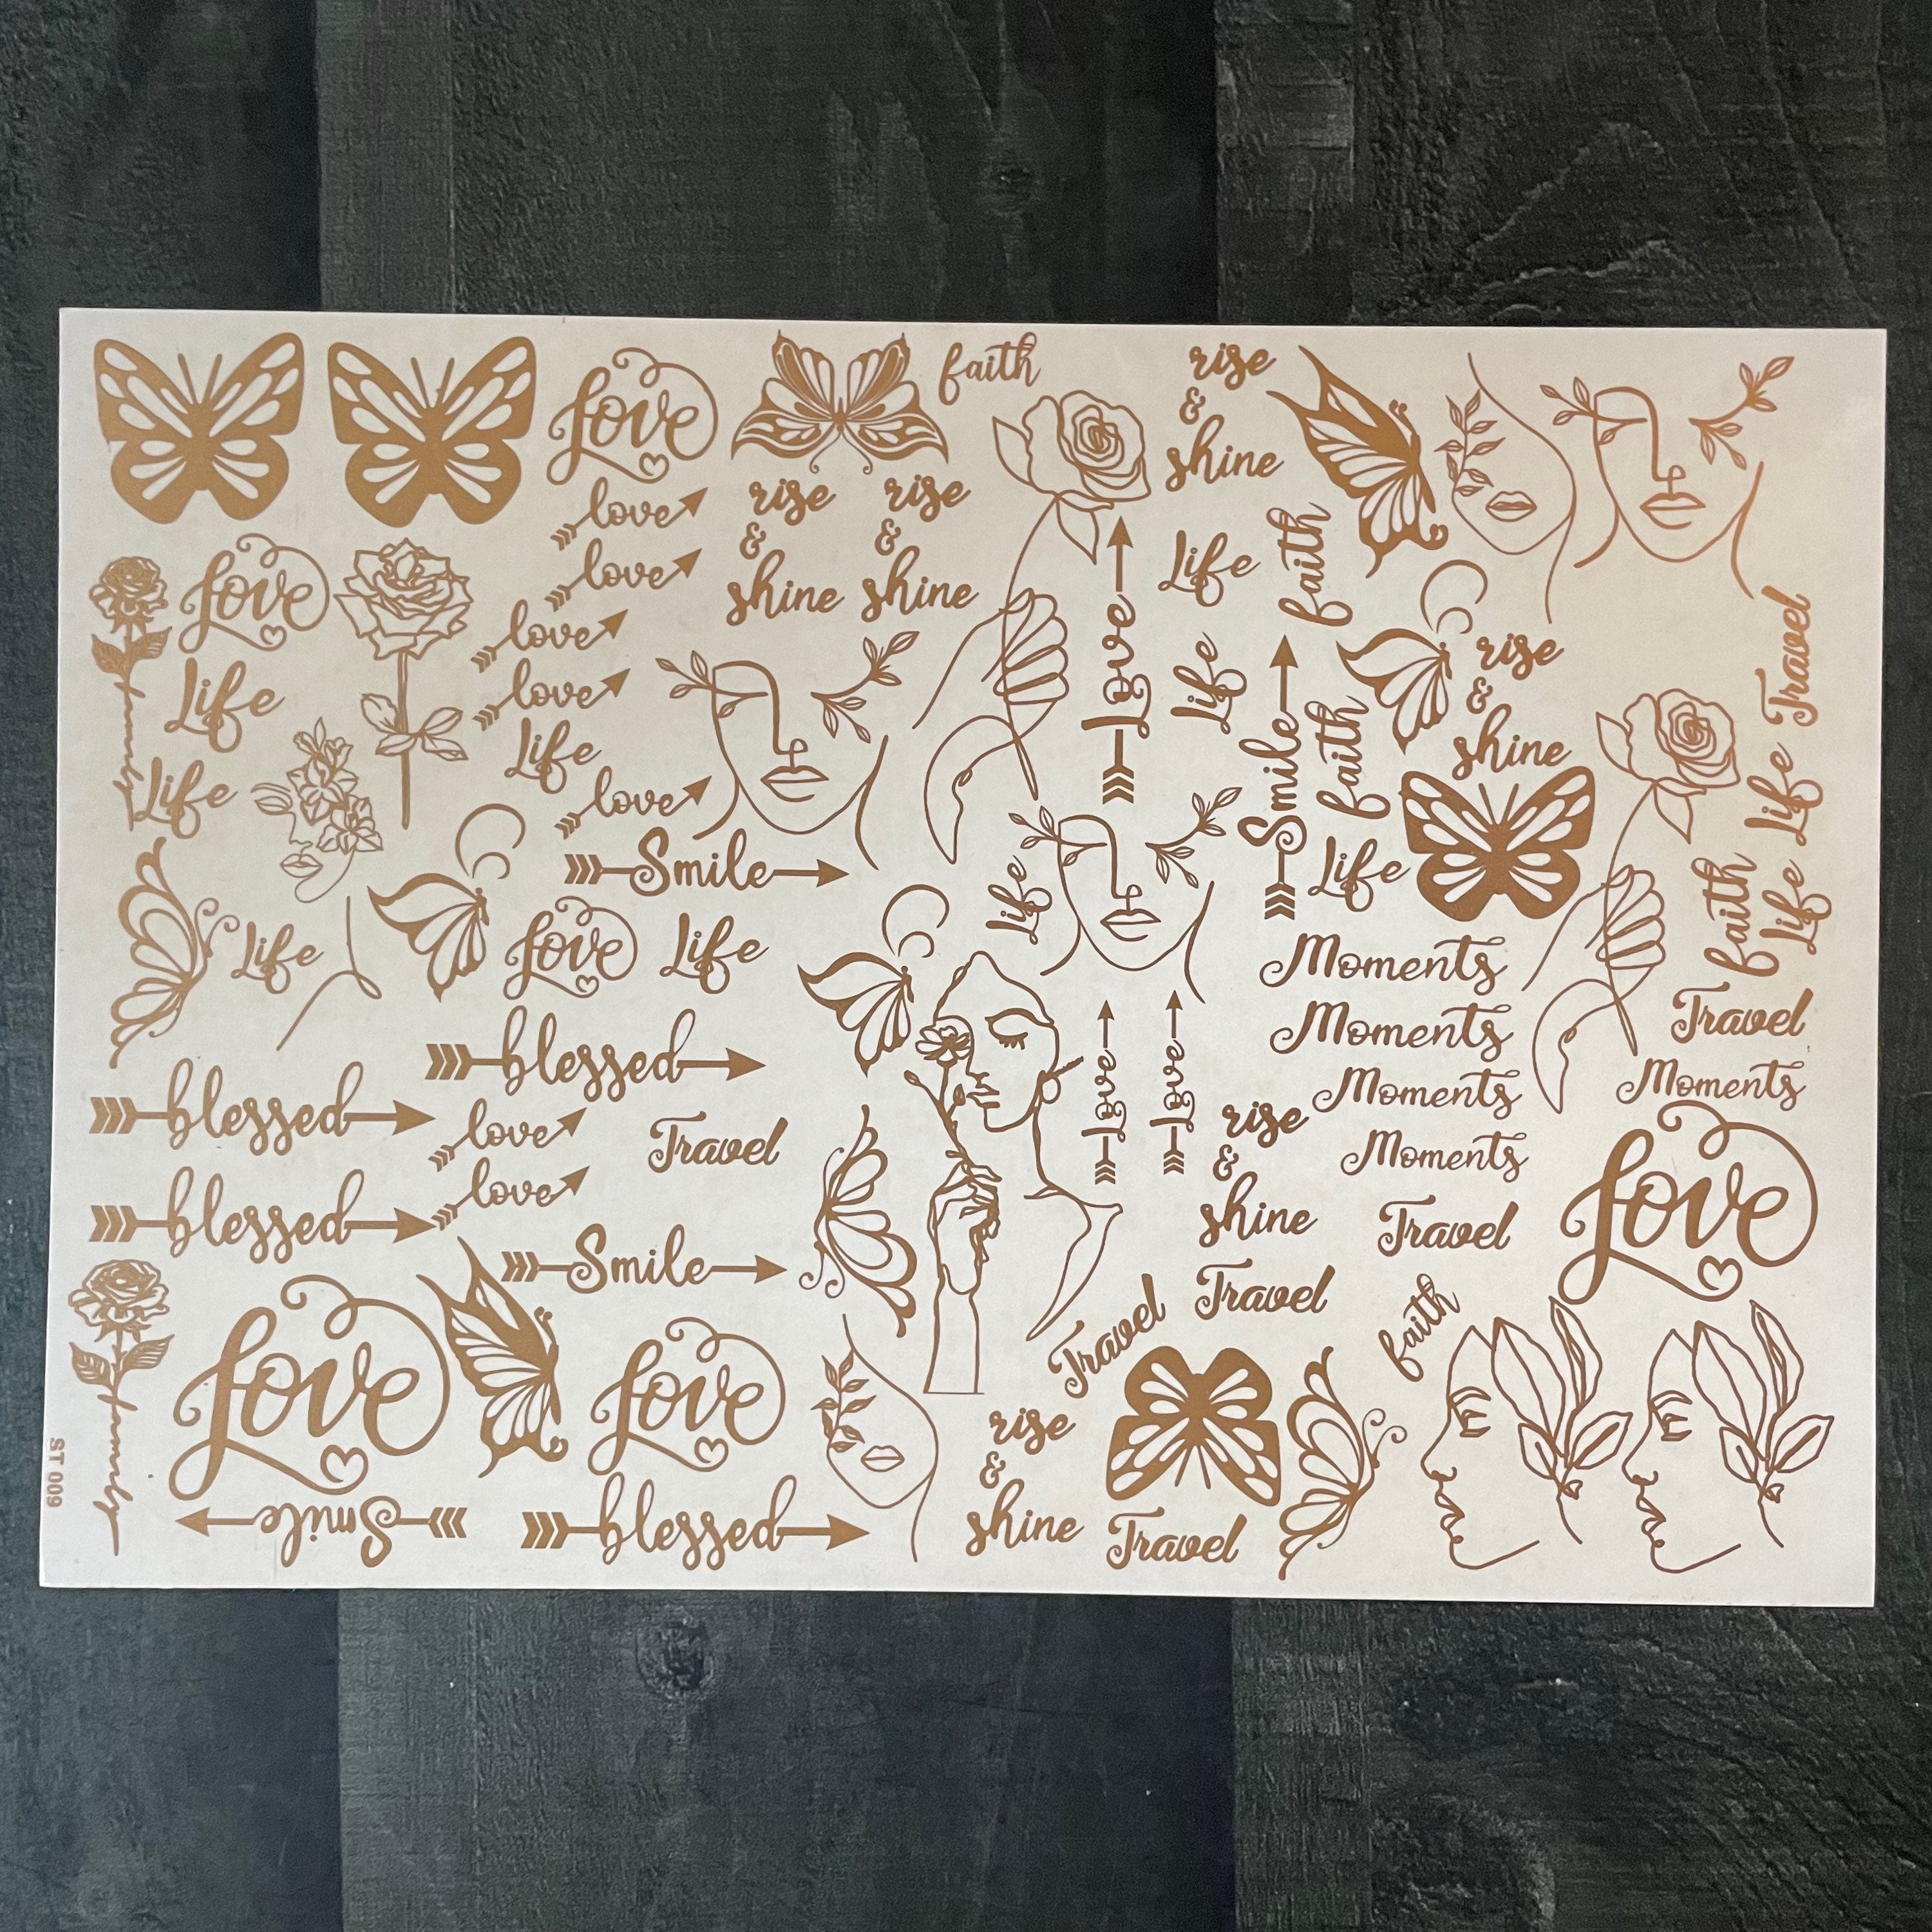 Love
faith
rise
&
shine
love
love
rise
&
shine
rise
&
shine
Love
love
love
Life
Life
Life
love
Smile
Love
Life
faith
Life
Smile
faith
rise
&
shine
Travel
Life
Life
faith
Life
Life
Life
Love
Life
Moments
Moments
Moments
Moments
Travel
Moments
blessed
blessed
love
love
Travel
blessed
Love
Love
rise
&
shine
Travel
Love
Smile
Travel
Travel
faith
Love
Love
family
family
rise
&
shine
Travel
ST 009
Smile
blessed